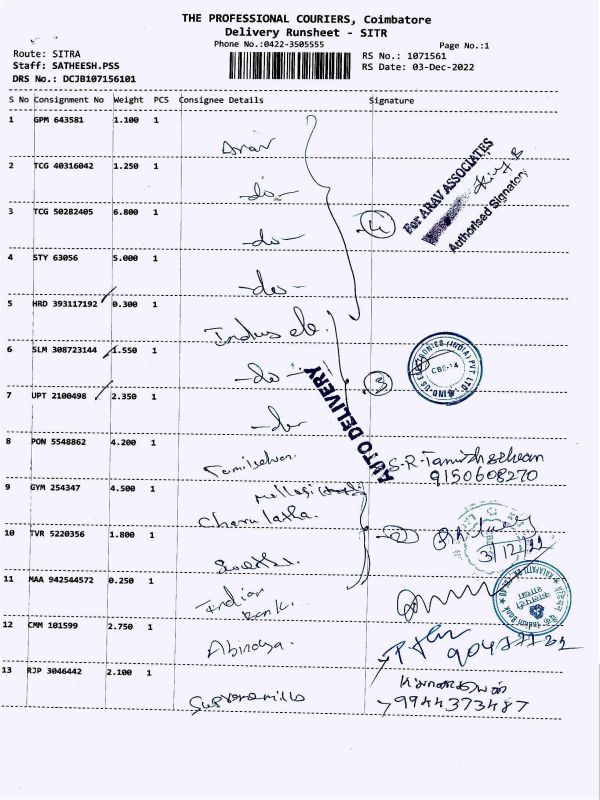 THE PROFESSIONAL COURIERS, Coimbatore
Delivery Runsheet - SITR
Phone No.:0422-3505555
Page No.:1
Route: SITRA
RS No.: 1071561
Staff: SATHEESH.PSS
RS Date: 03-Dec-2022
DRS No.: DCJB107156101
S No Consignment No Weight PCS Consignee Details Signature
1 GPM 643581 1.100 1 Arav
2 TCG 40316042 1.250 1 -do-
For ARAV ASSOCIATES
Authorised Signatory
3 TCG 50282405 6.800 1 -do- 4
4 STY 63056 5.000 1 -do-
5 HRD 393117192 0.300 1 Indus ele.
6 SLM 308723144 1.550 1 -do- 3
INDUS ELECTRONICS (INDIA) PVT LTD.
CBE-14
AUTO DELIVERY
7 UPT 2100498 2.350 1 -do-
8 PON 5548862 4.200 1 Tamilselvan. S-R-Tamilhselvan
9150608270
9 GYM 254347 4.500 1
Charu latha.
10 TVR 5220356 1.800 1 2
3/12/22
11 MAA 942544572 0.250 1 Indian
Bank.
Indian Bank
12 CMM 101599 2.750 1 Abinaya.
13 RJP 3046442 2.100 1
9944373487